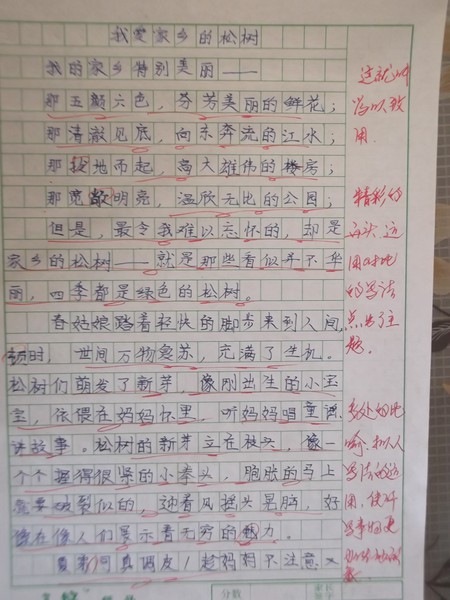 我爱家乡的松树
我的家乡特别美丽——
那五颜六色，芬芳美丽的鲜花；
那清澈见底，向东奔流的江水；
那拔地而起，高大雄伟的楼房；
那宽敞明亮，温欣无比的公园；
但是，最令我难以忘怀的，却是
家乡的松树——就是那些看似并不华
丽，四季都是绿色的松树。
春姑娘踏着轻快的脚步来到人间，
时，世间万物复苏，充满了生机。
松树们萌发了新芽，像刚出生的小宝
宝，依偎在妈妈怀里，听妈妈唱童谣
讲故事。松树的新芽立在枝头，像一
个个握得很紧的小拳头，胞胀的马上
就要破裂似的，迎着风摇头晃脑，好
像在像人们展示着无穷的魅力。
夏 可真调皮！趁妈妈不注意，
这就叫
学以致
用
精彩的
开头，运
用对比
的写法
点出了主
题。
多处的比
喻、拟人
写法的运
用，使叫
事物更
分数